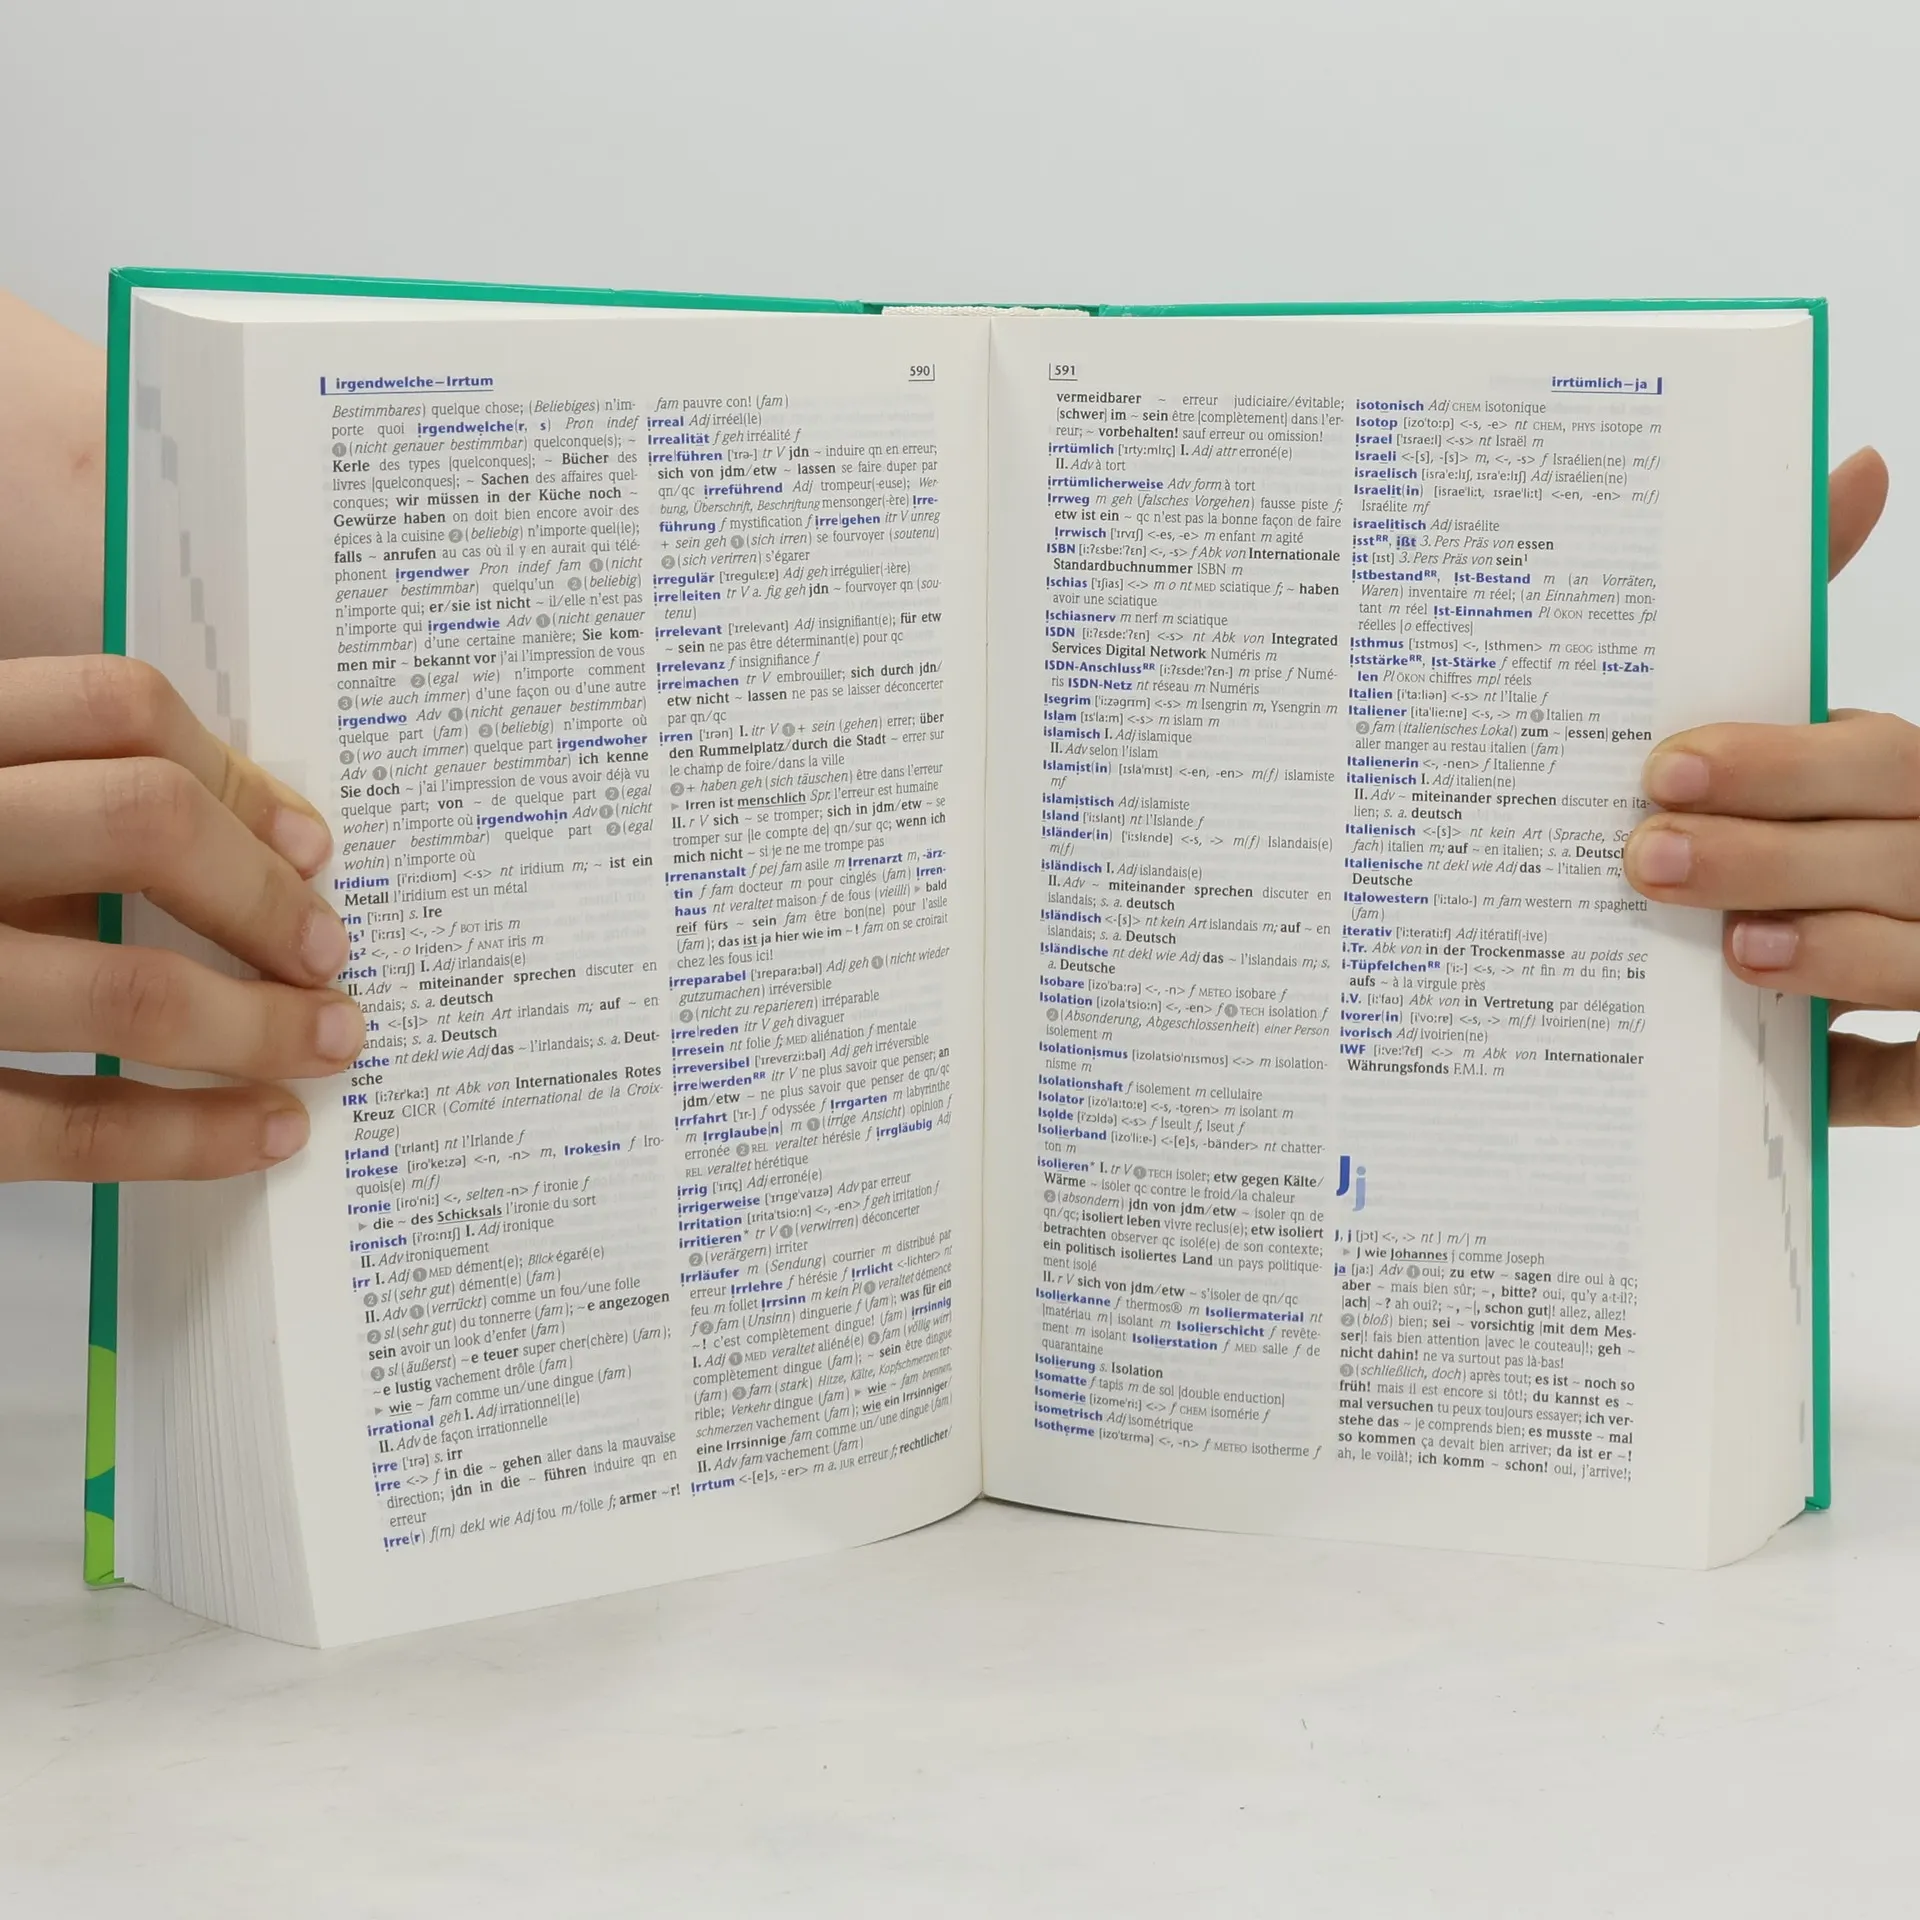 irgendwelche–Irrtum
590
Bestimmbares) quelque chose; (Beliebiges) n'im-
porte quoi irgendwelche(r, s) Pron indef
❶(nicht genauer bestimmbar) quelconque(s); ~
Kerle des types |quelconques|; ~ Bücher des
livres |quelconques|; ~ Sachen des affaires quel-
conques; wir müssen in der Küche noch ~
Gewürze haben on doit bien encore avoir des
épices à la cuisine ❷(beliebig) n'importe quel(le);
falls ~ anrufen au cas où il y en aurait qui télé-
phonent irgendwer Pron indef fam ❶(nicht
genauer bestimmbar) quelqu'un ❷(beliebig)
n'importe qui; er/sie ist nicht ~ il/elle n'est pas
n'importe qui irgendwie Adv ❶(nicht genauer
bestimmbar) d'une certaine manière; Sie kom-
men mir ~ bekannt vor j'ai l'impression de vous
connaître ❷(egal wie) n'importe comment
❸(wie auch immer) d'une façon ou d'une autre
irgendwo Adv ❶(nicht genauer bestimmbar)
quelque part (fam) ❷(beliebig) n'importe où
❸(wo auch immer) quelque part irgendwoher
Adv ❶(nicht genauer bestimmbar) ich kenne
Sie doch ~ j'ai l'impression de vous avoir déjà vu
quelque part; von ~ de quelque part ❷(egal
woher) n'importe où irgendwohin Adv ❶(nicht
genauer bestimmbar) quelque part ❷(egal
wohin) n'importe où
Iridium [i'ri:diʊm] <-s> nt iridium m; ~ ist ein
Metall l'iridium est un métal
rin ['i:rɪn] s. Ire
is¹ ['i:rɪs] <-, -> f BOT iris m
is² <-, - o Iriden> f ANAT iris m
risch ['i:rɪʃ] I. Adj irlandais(e)
II. Adv ~ miteinander sprechen discuter en
landais; s. a. deutsch
ch <-[s]> nt kein Art irlandais m; auf ~ en
andais; s. a. Deutsch
ische nt dekl wie Adj das ~ l'irlandais; s. a. Deut-
sche
IRK [i:ʔɛr'ka:] nt Abk von Internationales Rotes
Kreuz CICR (Comité international de la Croix-
Rouge)
Irland ['ɪrlant] nt l'Irlande f
Irokese [iro'ke:zə] <-n, -n> m, Irokesin f Iro-
quois(e) m(f)
Ironie [iro'ni:] <-, selten -n> f ironie f
▸ die ~ des Schicksals l'ironie du sort
ironisch [i'ro:nɪʃ] I. Adj ironique
II. Adv ironiquement
irr I. Adj ❶MED dément(e); Blick égaré(e)
❷sl (sehr gut) dément(e) (fam)
II. Adv ❶(verrückt) comme un fou/une folle
❷sl (sehr gut) du tonnerre (fam); ~e angezogen
sein avoir un look d'enfer (fam)
❸sl (äußerst) ~e teuer super cher(chère) (fam);
~e lustig vachement drôle (fam)
▸ wie ~ fam comme un/une dingue (fam)
irrational geh I. Adj irrationnel(le)
II. Adv de façon irrationnelle
irre ['ɪrə] s. irr
Irre <-> f in die ~ gehen aller dans la mauvaise
direction; jdn in die ~ führen induire qn en
erreur
Irre(r) f(m) dekl wie Adj fou m/folle f; armer ~r!
fam pauvre con! (fam)
irreal Adj irréel(le)
Irrealität f geh irréalité f
irre|führen ['ɪrə-] tr V jdn ~ induire qn en erreur;
sich von jdm/etw ~ lassen se faire duper par
qn/qc irreführend Adj trompeur(-euse); Wer-
bung, Überschrift, Beschriftung mensonger(-ère) Irre-
führung f mystification f irre|gehen itr V unreg
+ sein geh ❶(sich irren) se fourvoyer (soutenu)
❷(sich verirren) s'égarer
irregulär ['ɪregulɛ:ɐ] Adj geh irrégulier(-ière)
irre|leiten tr V a. fig geh jdn ~ fourvoyer qn (sou-
tenu)
irrelevant ['ɪrelevant] Adj insignifiant(e); für etw
~ sein ne pas être déterminant(e) pour qc
Irrelevanz f insignifiance f
irre|machen tr V embrouiller; sich durch jdn/
etw nicht ~ lassen ne pas se laisser déconcerter
par qn/qc
irren ['ɪrən] I. itr V ❶+ sein (gehen) errer; über
den Rummelplatz/durch die Stadt ~ errer sur
le champ de foire/dans la ville
❷+ haben geh (sich täuschen) être dans l'erreur
▸ Irren ist menschlich Spr. l'erreur est humaine
II. r V sich ~ se tromper; sich in jdm/etw ~ se
tromper sur |le compte de| qn/sur qc; wenn ich
mich nicht ~ si je ne me trompe pas
Irrenanstalt f pej fam asile m Irrenarzt m, -ärz-
tin f fam docteur m pour cinglés (fam) Irren-
haus nt veraltet maison f de fous (vieilli) ▸ bald
reif fürs ~ sein fam être bon(ne) pour l'asile
(fam); das ist ja hier wie im ~! fam on se croirait
chez les fous ici!
irreparabel ['ɪrepara:bəl] Adj geh ❶(nicht wieder
gutzumachen) irréversible
❷(nicht zu reparieren) irréparable
irre|reden itr V geh divaguer
Irresein nt folie f; MED aliénation f mentale
irreversibel ['ɪreverzi:bəl] Adj geh irréversible
irre|werdenRR itr V ne plus savoir que penser; an
jdm/etw ~ ne plus savoir que penser de qn/qc
Irrfahrt ['ɪr-] f odyssée f Irrgarten m labyrinthe
m Irrglaube|n| m ❶(irrige Ansicht) opinion f
erronée ❷REL veraltet hérésie f irrgläubig Adj
REL veraltet hérétique
irrig ['ɪrɪç] Adj erroné(e)
irrigerweise ['ɪrɪgɐ'vaɪzə] Adv par erreur
Irritation [ɪrita'tsio:n] <-, -en> f geh irritation f
irritieren* tr V ❶(verwirren) déconcerter
❷(verärgern) irriter
Irrläufer m (Sendung) courrier m distribué par
erreur Irrlehre f hérésie f Irrlicht <-lichter> nt
feu m follet Irrsinn m kein Pl ❶veraltet démence
f ❷fam (Unsinn) dinguerie f (fam); was für ein
~! c'est complètement dingue! (fam) irrsinnig
I. Adj ❶MED veraltet aliéné(e) ❷fam (völlig wirr)
complètement dingue (fam); ~ sein être dingue
(fam) ❸fam (stark) Hitze, Kälte, Kopfschmerzen ter-
rible; Verkehr dingue (fam) ▸ wie ~ fam brennen,
schmerzen vachement (fam); wie ein Irrsinniger/
eine Irrsinnige fam comme un/une dingue (fam)
II. Adv fam vachement (fam)
Irrtum <-[e]s, ⸚er> m a. JUR erreur f; rechtlicher/
591
irrtümlich–ja
vermeidbarer ~ erreur judiciaire/évitable;
|schwer| im ~ sein être |complètement| dans l'er-
reur; ~ vorbehalten! sauf erreur ou omission!
irrtümlich ['ɪrty:mlɪç] I. Adj attr erroné(e)
II. Adv à tort
irrtümlicherweise Adv form à tort
Irrweg m geh (falsches Vorgehen) fausse piste f;
etw ist ein ~ qc n'est pas la bonne façon de faire
Irrwisch ['ɪrvɪʃ] <-es, -e> m enfant m agité
ISBN [i:ʔɛsbe:'ʔɛn] <-, -s> f Abk von Internationale
Standardbuchnummer ISBN m
Ischias ['ɪʃias] <-> m o nt MED sciatique f; ~ haben
avoir une sciatique
Ischiasnerv m nerf m sciatique
ISDN [i:ʔɛsde:'ʔɛn] <-s> nt Abk von Integrated
Services Digital Network Numéris m
ISDN-AnschlussRR [i:ʔɛsde:'ʔɛn-] m prise f Numé-
ris ISDN-Netz nt réseau m Numéris
Isegrim ['i:zəgrɪm] <-s> m Isengrin m, Ysengrin m
Islam [ɪs'la:m] <-s> m islam m
islamisch I. Adj islamique
II. Adv selon l'islam
Islamist(in) [ɪsla'mɪst] <-en, -en> m(f) islamiste
mf
islamistisch Adj islamiste
Island ['i:slant] nt l'Islande f
Isländer(in) ['i:slɛndɐ] <-s, -> m(f) Islandais(e)
m(f)
isländisch I. Adj islandais(e)
II. Adv ~ miteinander sprechen discuter en
islandais; s. a. deutsch
Isländisch <-[s]> nt kein Art islandais m; auf ~ en
islandais; s. a. Deutsch
Isländische nt dekl wie Adj das ~ l'islandais m; s.
a. Deutsche
Isobare [izo'ba:rə] <-, -n> f METEO isobare f
Isolation [izola'tsio:n] <-, -en> f ❶TECH isolation f
❷(Absonderung, Abgeschlossenheit) einer Person
isolement m
Isolationismus [izolatsio'nɪsmʊs] <-> m isolation-
nisme m
Isolationshaft f isolement m cellulaire
Isolator [izo'la:to:ɐ] <-s, -toren> m isolant m
Isolde [i'zɔldə] <-s> f Iseult f, Iseut f
Isolierband [izo'li:ɐ-] <-[e]s, -bänder> nt chatter-
ton m
isolieren* I. tr V ❶TECH isoler; etw gegen Kälte/
Wärme ~ isoler qc contre le froid/la chaleur
❷(absondern) jdn von jdm/etw ~ isoler qn de
qn/qc; isoliert leben vivre reclus(e); etw isoliert
betrachten observer qc isolé(e) de son contexte;
ein politisch isoliertes Land un pays politique-
ment isolé
II. r V sich von jdm/etw ~ s'isoler de qn/qc
Isolierkanne f thermos® m Isoliermaterial nt
|matériau m| isolant m Isolierschicht f revête-
ment m isolant Isolierstation f MED salle f de
quarantaine
Isolierung s. Isolation
Isomatte f tapis m de sol |double enduction|
Isomerie [izome'ri:] <-> f CHEM isomérie f
isometrisch Adj isométrique
Isotherme [izo'tɛrmə] <-, -n> f METEO isotherme f
isotonisch Adj CHEM isotonique
Isotop [izo'to:p] <-s, -e> nt CHEM, PHYS isotope m
Israel ['ɪsrae:l] <-s> nt Israël m
Israeli <-[s], -[s]> m, <-, -s> f Israélien(ne) m(f)
israelisch [isra'e:lɪʃ, ɪsra'e:lɪʃ] Adj israélien(ne)
Israelit(in) [israe'li:t, ɪsrae'li:t] <-en, -en> m(f)
Israélite mf
israelitisch Adj israélite
isstRR, ißt 3. Pers Präs von essen
ist [ɪst] 3. Pers Präs von sein¹
IstbestandRR, Ist-Bestand m (an Vorräten,
Waren) inventaire m réel; (an Einnahmen) mon-
tant m réel Ist-Einnahmen Pl ÖKON recettes fpl
réelles |o effectives|
Isthmus ['ɪstmʊs] <-, Isthmen> m GEOG isthme m
IststärkeRR, Ist-Stärke f effectif m réel Ist-Zah-
len Pl ÖKON chiffres mpl réels
Italien [i'ta:liən] <-s> nt l'Italie f
Italiener [ita'lie:nɐ] <-s, -> m ❶Italien m
❷fam (italienisches Lokal) zum ~ |essen| gehen
aller manger au restau italien (fam)
Italienerin <-, -nen> f Italienne f
italienisch I. Adj italien(ne)
II. Adv ~ miteinander sprechen discuter en ita-
lien; s. a. deutsch
Italienisch <-[s]> nt kein Art (Sprache, Sc
fach) italien m; auf ~ en italien; s. a. Deutsch
Italienische nt dekl wie Adj das ~ l'italien m;
Deutsche
Italowestern ['i:talo-] m fam western m spaghetti
(fam)
iterativ ['i:terati:f] Adj itératif(-ive)
i.Tr. Abk von in der Trockenmasse au poids sec
i-TüpfelchenRR ['i:-] <-s, -> nt fin m du fin; bis
aufs ~ à la virgule près
i.V. [i:'faʊ] Abk von in Vertretung par délégation
Ivorer(in) [i'vo:rɐ] <-s, -> m(f) Ivoirien(ne) m(f)
ivorisch Adj ivoirien(ne)
IWF [i:ve:'ʔɛf] <-> m Abk von Internationaler
Währungsfonds F.M.I. m
Jj
J, j [jɔt] <-, -> nt J m/j m
▸ J wie Johannes j comme Joseph
ja [ja:] Adv ❶oui; zu etw ~ sagen dire oui à qc;
aber ~ mais bien sûr; ~, bitte? oui, qu'y a-t-il?;
|ach| ~? ah oui?; ~, ~|, schon gut|! allez, allez!
❷(bloß) bien; sei ~ vorsichtig |mit dem Mes-
ser|! fais bien attention |avec le couteau|!; geh ~
nicht dahin! ne va surtout pas là-bas!
❸(schließlich, doch) après tout; es ist ~ noch so
früh! mais il est encore si tôt!; du kannst es ~
mal versuchen tu peux toujours essayer; ich ver-
stehe das ~ je comprends bien; es musste ~ mal
so kommen ça devait bien arriver; da ist er ~!
ah, le voilà!; ich komm ~ schon! oui, j'arrive!;